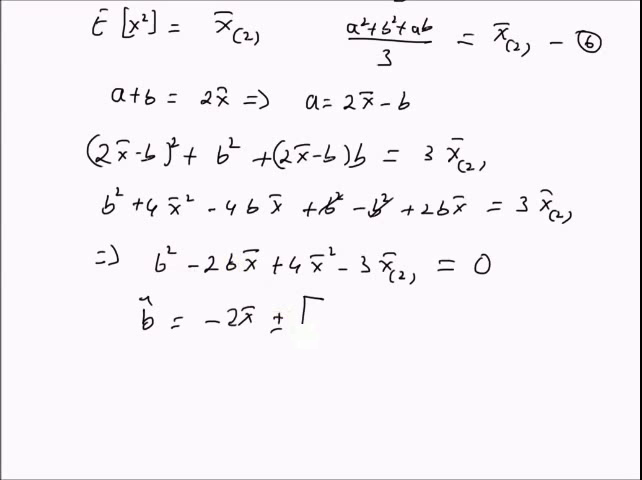 E [x²] = x̄₍₂₎   (a²+b²+ab)/3 = x̄₍₂₎ - ⑥
a+b = 2x̄ => a = 2x̄ - b
(2x̄-b)² + b² + (2x̄-b)b = 3 x̄₍₂₎
b² + 4x̄² - 4bx̄ + b² - b² + 2bx̄ = 3 x̄₍₂₎
=> b² - 2bx̄ + 4x̄² - 3x̄₍₂₎ = 0
b̂ = - 2x̄ ± √